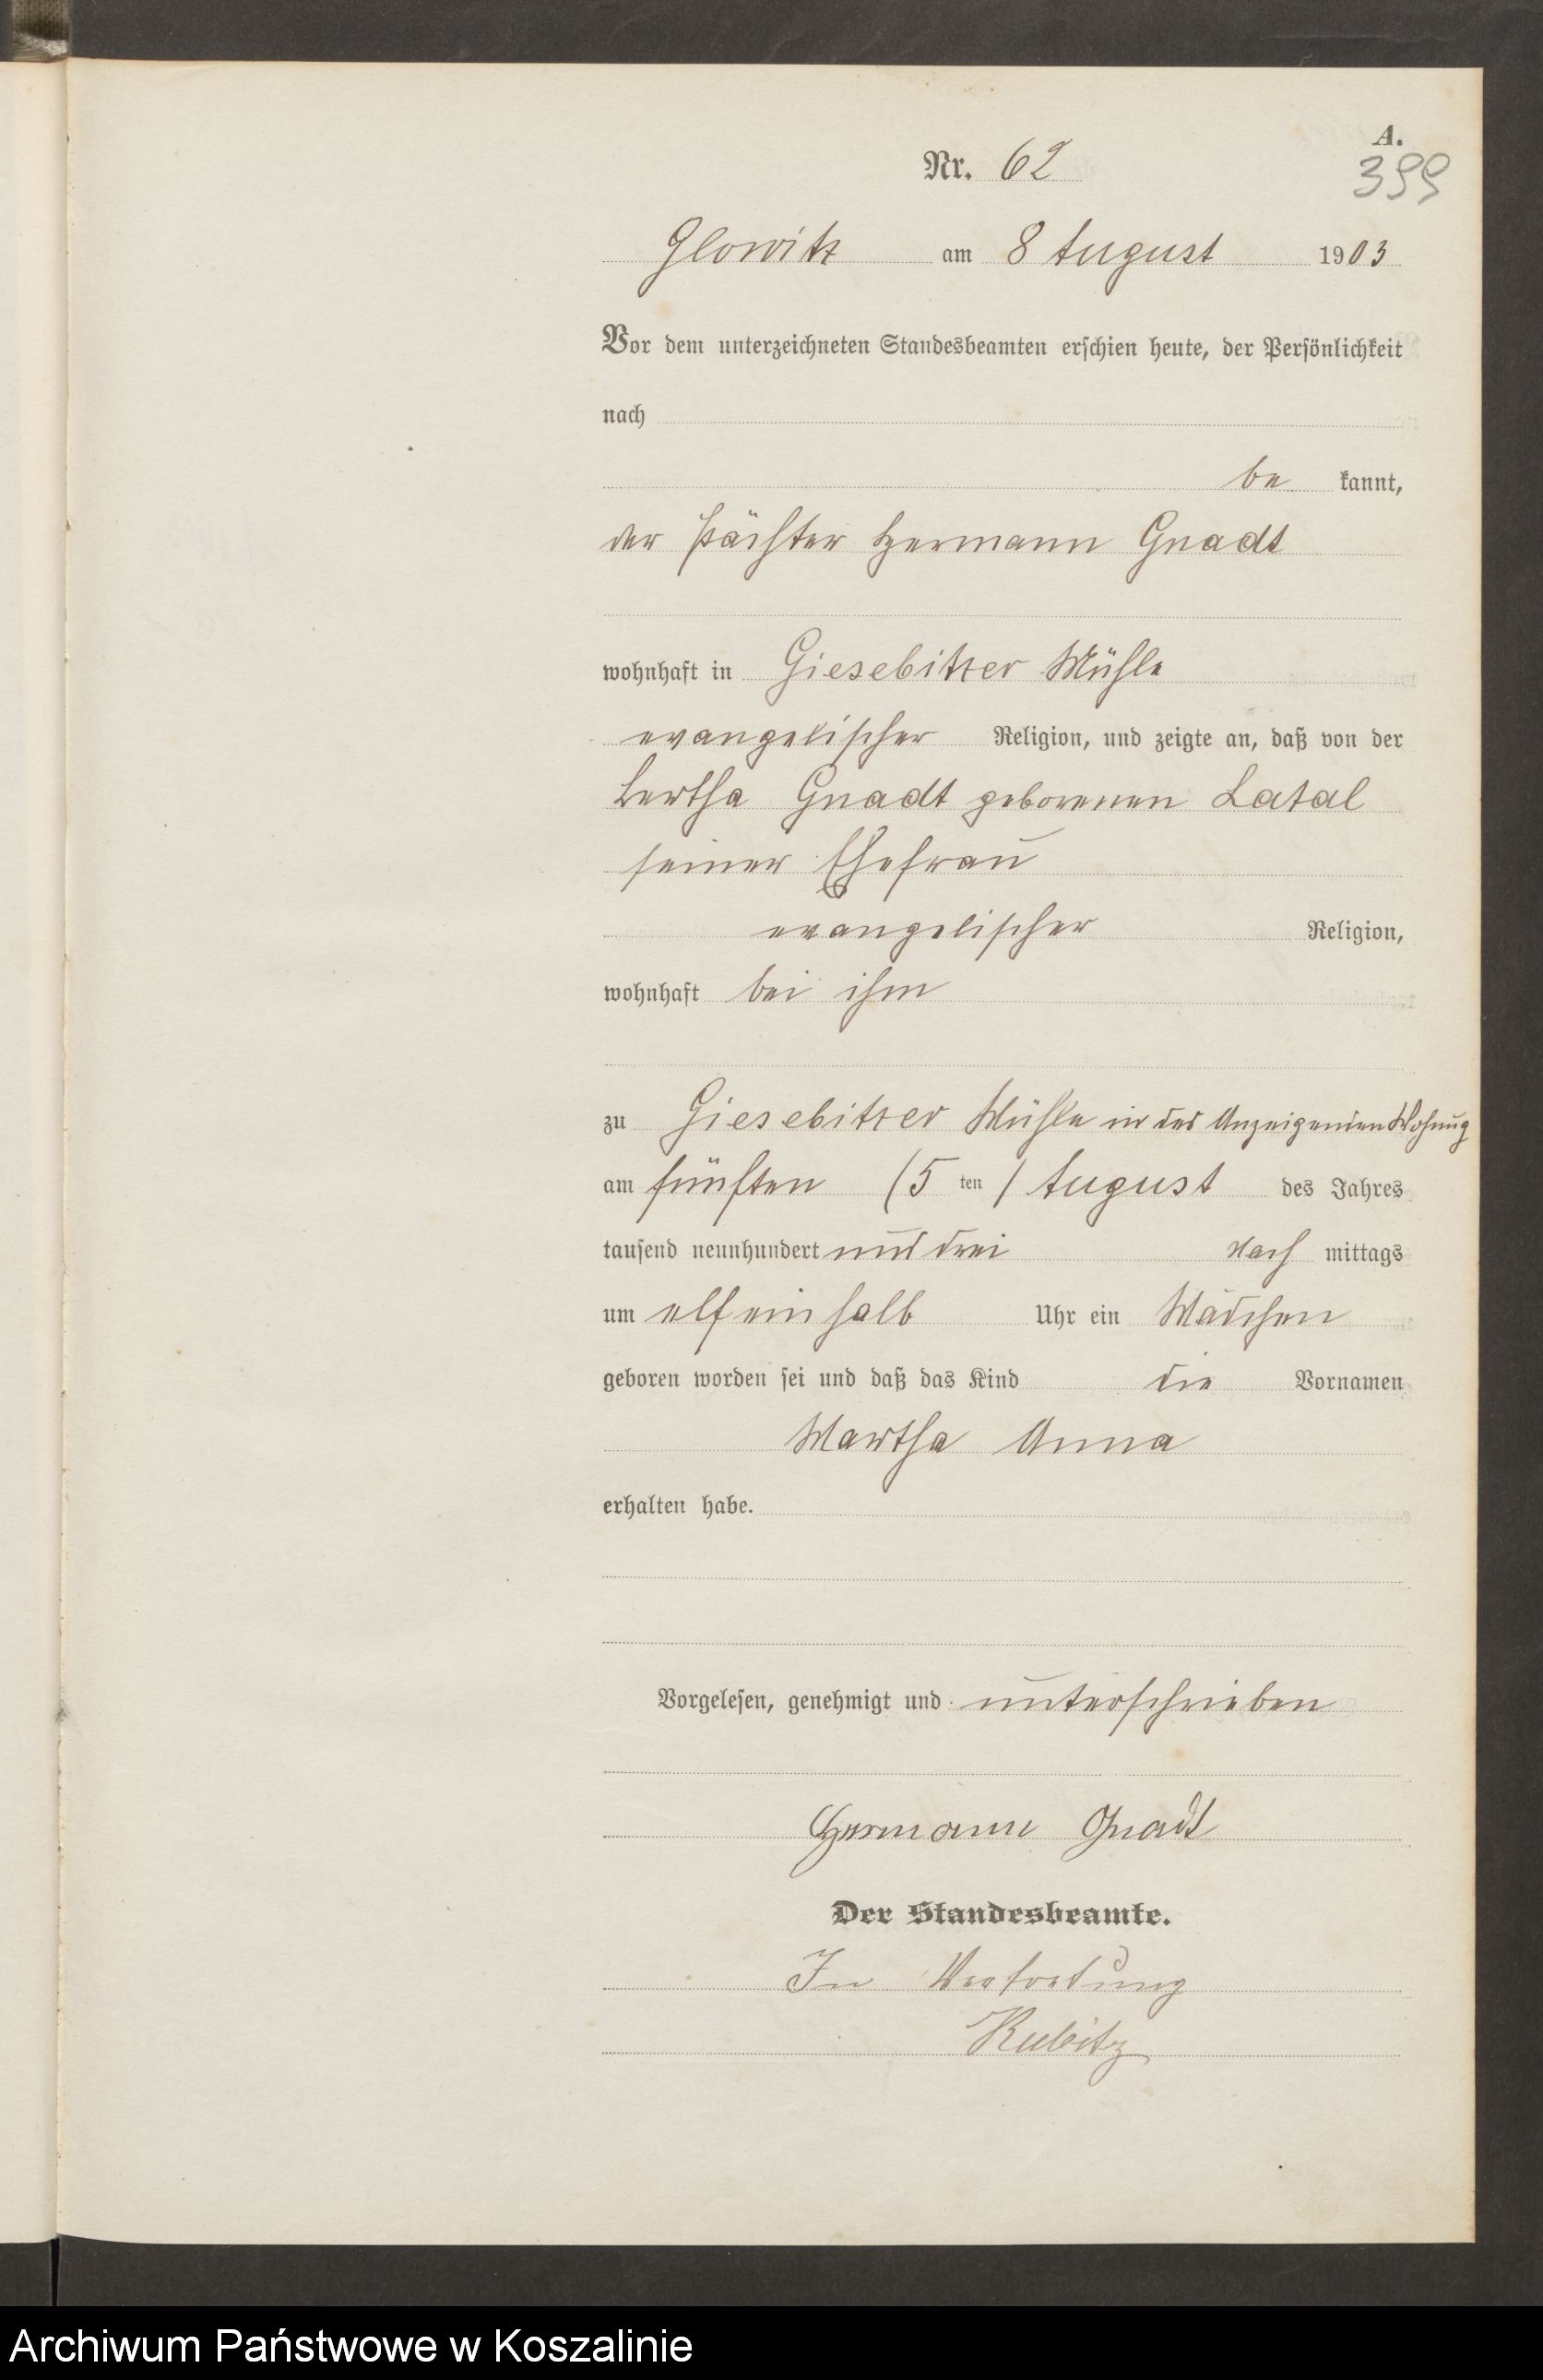 A.
Nr. 62
399
Glowitz am 8 August 1903
Vor dem unterzeichneten Standesbeamten erschien heute, der Persönlichkeit
nach
be kannt,
der Pächter Hermann Gnadt
wohnhaft in Giesebitzer Mühle
evangelischer Religion, und zeigte an, daß von der
Bertha Gnadt geborenen Latal
seiner Ehefrau
evangelischer Religion,
wohnhaft bei ihm
zu Giesebitzer Mühle in des Anzeigenden Wohnung
am fünften (5 ten) August des Jahres
tausend neunhundert und drei Nach mittags
um elfeinhalb Uhr ein Mädchen
geboren worden sei und daß das Kind die Vornamen
Martha Anna
erhalten habe.
Vorgelesen, genehmigt und unterschrieben
Hermann Gnadt
Der Standesbeamte.
In Vertretung
Kubitz
Archiwum Państwowe w Koszalinie